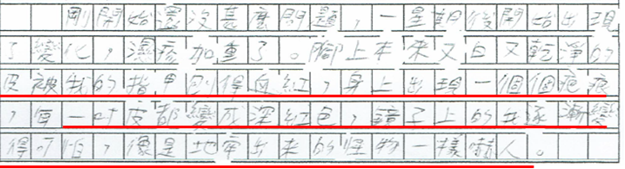 剛開始還沒甚麼問題，一星期後開始出現
了變化，濕疹加重了。腳上本來又白又乾淨的
皮被我的指甲刮得血紅，身上出現一個個疤痕
，每一吋皮都變成深紅色，鏡子上的我逐漸變
得可怕，像是地牢出來的怪物一樣嚇人。